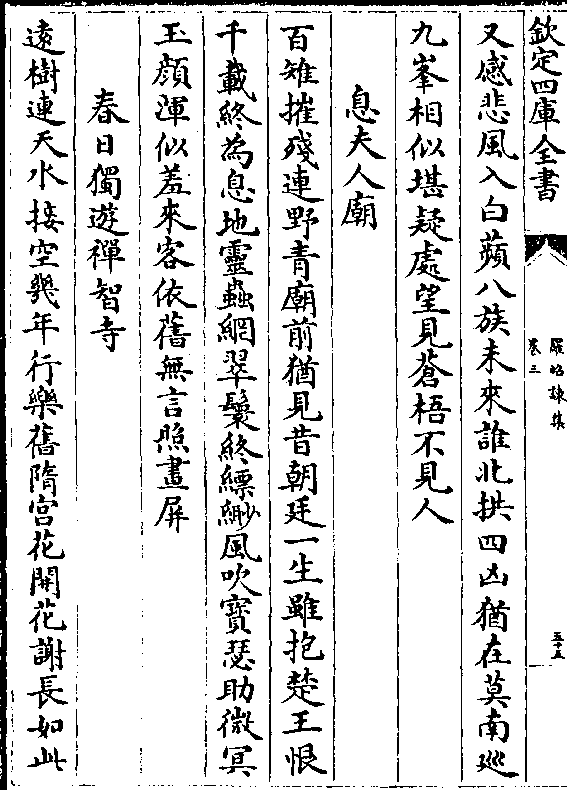 欽定四庫全書
羅昭諫集
卷三
五十五
又感悲風入白蘋八族未來誰北拱四凶猶在莫南巡
九峯相似堪疑處望見蒼梧不見人
息夫人廟
百雉摧殘連野青廟前猶見昔朝廷一生雖抱楚王恨
千載終為息地靈蟲網翠鬟終縹緲風吹寶瑟助微冥
玉顏渾似羞來客依舊無言照畫屏
春日獨遊禪智寺
遠樹連天水接空幾年行樂舊隋宮花開花謝長如此